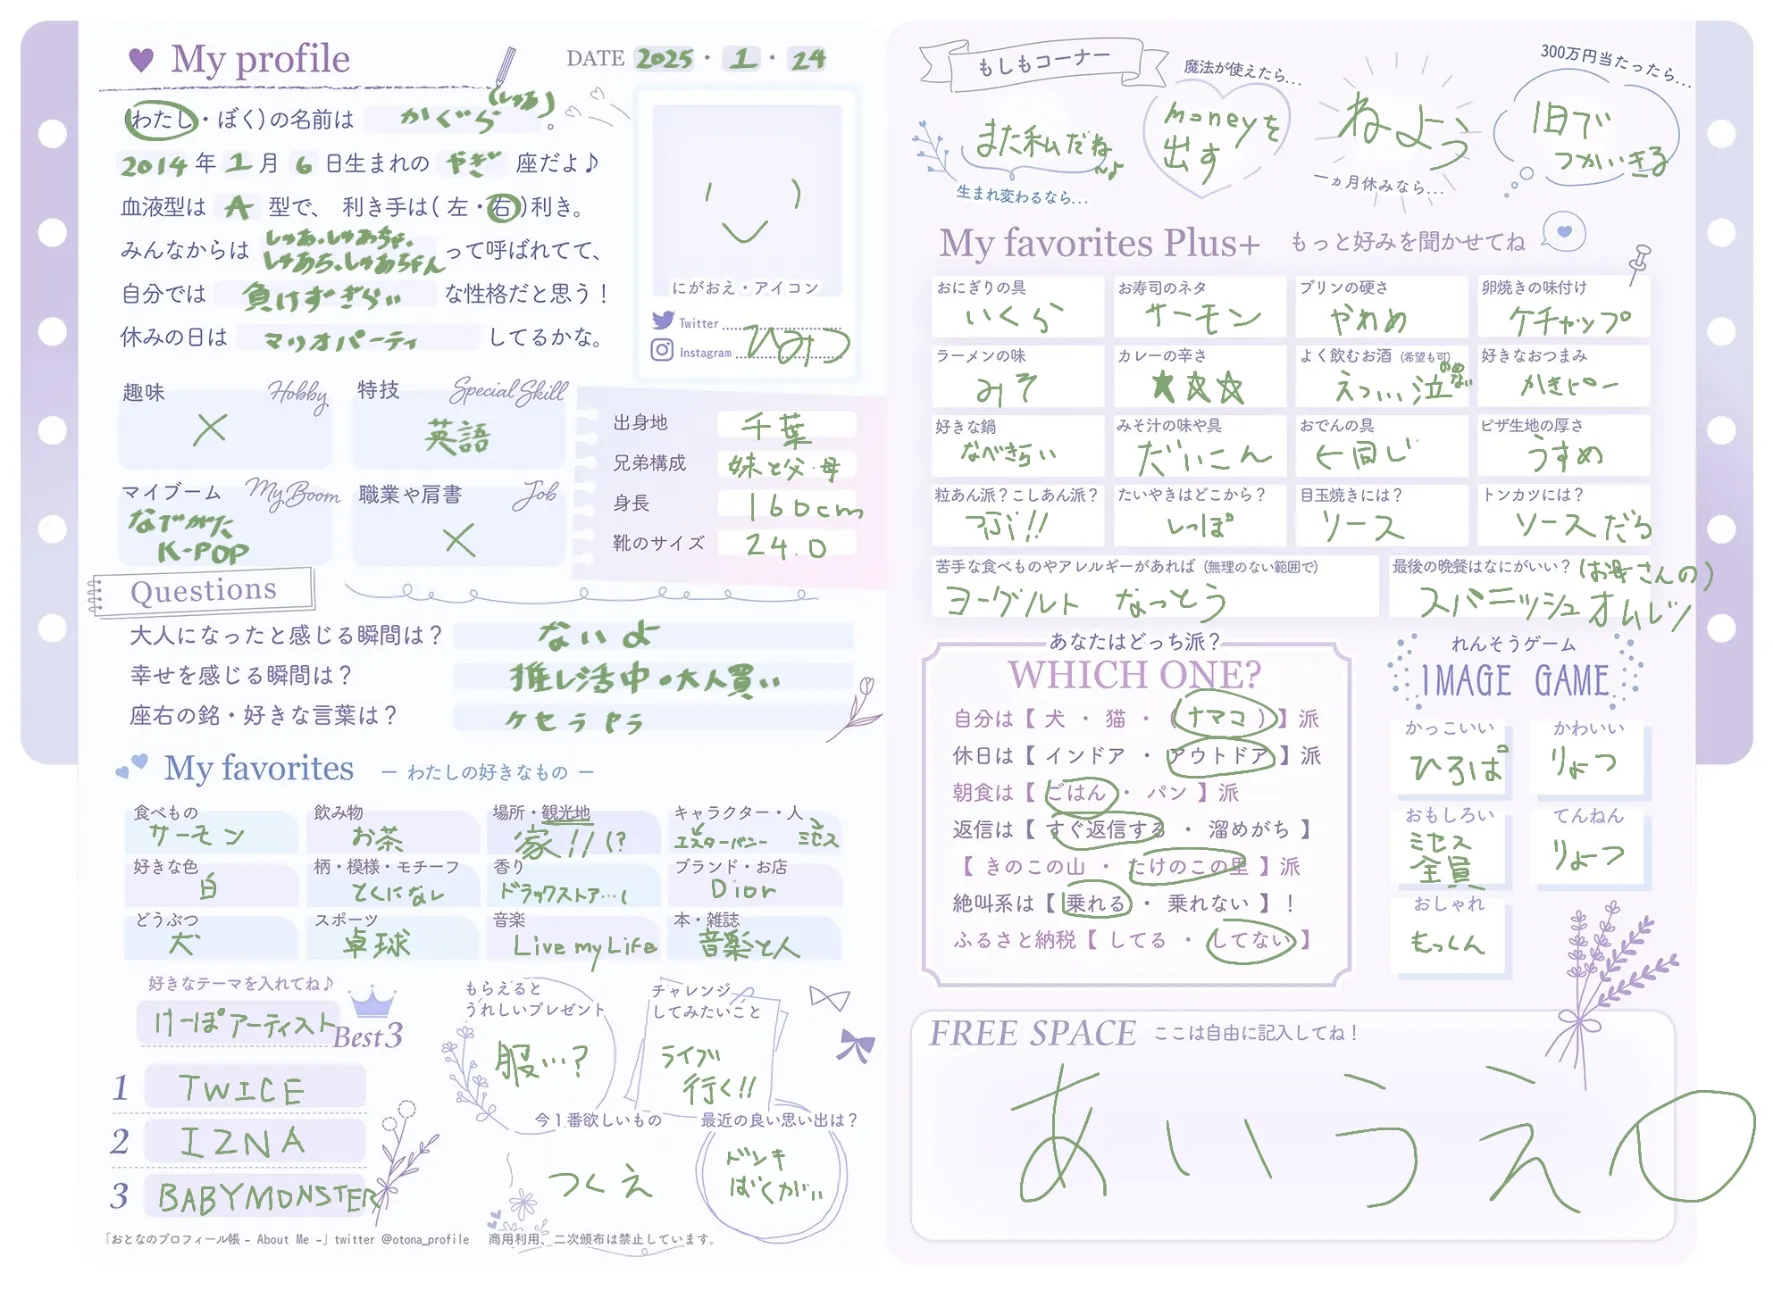 My profile
DATE 2025・1・24
(わたし・ぼく)の名前は かぐら(しゅあ)。
2014年1月6日生まれの やぎ 座だよ♪
血液型は A 型で、 利き手は( 左・右 )利き。
みんなからは しゅあ、しゅあちゃ、
しゅあら、しゅあちゃん って呼ばれてて、
自分では 負けずぎらい な性格だと思う！
休みの日は マリオパーティ してるかな。
にがおえ・アイコン
Twitter
Instagram
ひみつ
趣味 Hobby
×
特技 Special Skill
英語
マイブーム My Boom
なでがた
K-POP
職業や肩書 Job
×
出身地 千葉
兄弟構成 妹と父・母
身長 160cm
靴のサイズ 24.0
Questions
大人になったと感じる瞬間は？ ないよ
幸せを感じる瞬間は？ 推し活中・大人買い
座右の銘・好きな言葉は？ ケセラセラ
My favorites ー わたしの好きなもの ー
食べもの
サーモン
飲み物
お茶
場所・観光地
家!!(?
キャラクター・人
エスターバニー ミセス
好きな色
白
柄・模様・モチーフ
とくになし
香り
ドラックストア…(
ブランド・お店
Dior
どうぶつ
犬
スポーツ
卓球
音楽
Live my Life
本・雑誌
音楽と人
好きなテーマを入れてね♪
けーぽアーティスト
Best3
1 TWICE
2 IZNA
3 BABYMONSTER
もらえると
うれしいプレゼント
服…?
チャレンジ
してみたいこと
ライブ
行く!!
今1番欲しいもの
つくえ
最近の良い思い出は？
ドンキ
ばくがい
「おとなのプロフィール帳 - About Me -」twitter @otona_profile 商用利用、二次頒布は禁止しています。
もしもコーナー
また私だね
んよ
生まれ変わるなら...
魔法が使えたら...
moneyを
出す
ねよう
一ヵ月休みなら...
300万円当たったら...
1日で
つかいきる
My favorites Plus+ もっと好みを聞かせてね
おにぎりの具
いくら
お寿司のネタ
サーモン
プリンの硬さ
やわめ
卵焼きの味付け
ケチャップ
ラーメンの味
みそ
カレーの辛さ
★☆☆
よく飲むお酒 (希望も可)
えっ…泣 のめない
好きなおつまみ
かきピー
好きな鍋
なべきらい
みそ汁の味や具
だいこん
おでんの具
←同じ
ピザ生地の厚さ
うすめ
粒あん派？こしあん派？
つぶ!!
たいやきはどこから？
しっぽ
目玉焼きには？
ソース
トンカツには？
ソースだろ
苦手な食べものやアレルギーがあれば (無理のない範囲で)
ヨーグルト なっとう
最後の晩餐はなにがいい？ (お母さんの)
スパニッシュオムレツ
あなたはどっち派？
WHICH ONE?
自分は【 犬 ・ 猫 ・ (ナマコ) 】派
休日は【 インドア ・ アウトドア 】派
朝食は【 ごはん ・ パン 】派
返信は【 すぐ返信する ・ 溜めがち 】
【 きのこの山 ・ たけのこの里 】派
絶叫系は【 乗れる ・ 乗れない 】！
ふるさと納税【 してる ・ してない 】
れんそうゲーム
IMAGE GAME
かっこいい
ひろぱ
かわいい
りょつ
おもしろい
ミセス
全員
てんねん
りょーつ
おしゃれ
もっくん
FREE SPACE ここは自由に記入してね！
あいうえ○